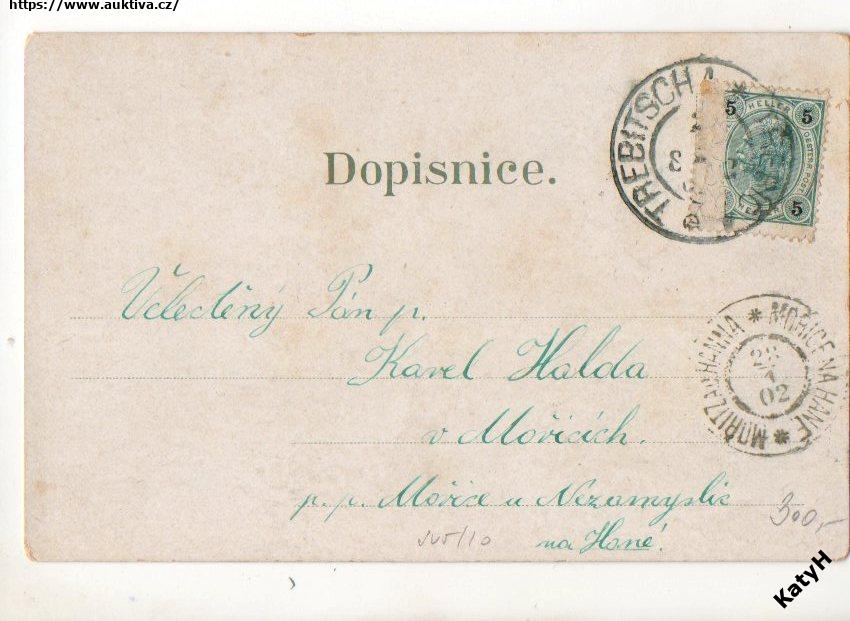 https://www.auktiva.cz/
Dopisnice.
TREBITSCH
5 HELLER 5
OESTERR. POST
5
Velectěný Pán p.
Karel Halda
v Mořicích.
p. p. Mořice u Nezamyslic
na Hané.
MOŘICE NA HANÉ * MORITZ
28
02
300,-
KatyH